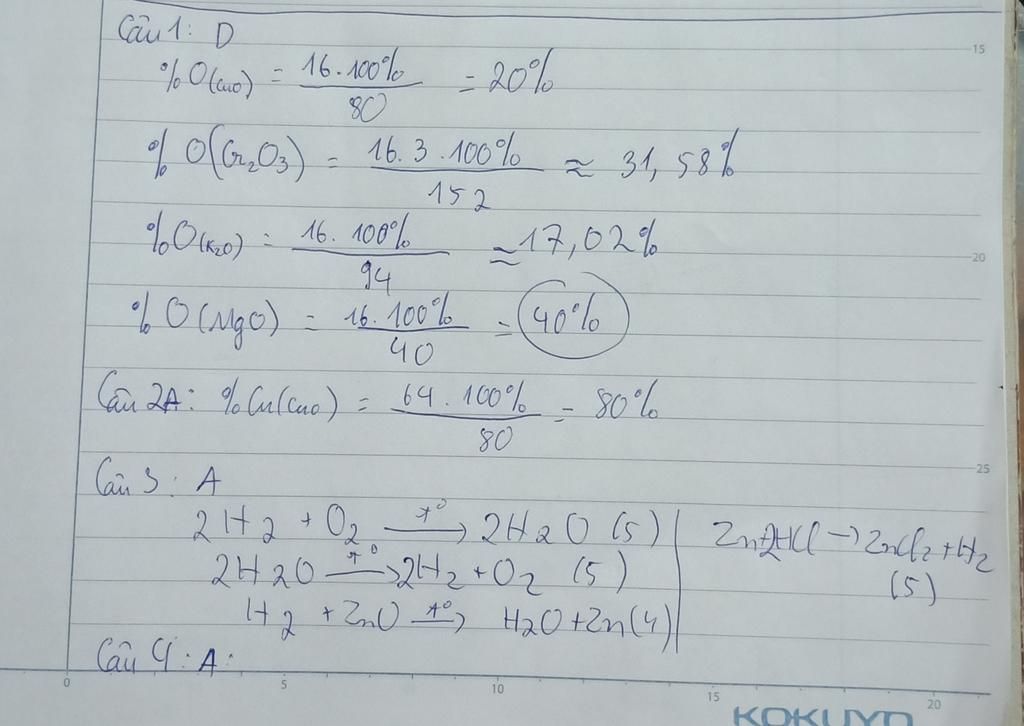 Câu 1: D
%O(CuO) = 16.100% / 80 = 20%
% O(Cr2O3) = 16.3.100% / 152 ≈ 31,58%
%O(K2O) = 16.100% / 94 ≈ 17,02%
% O(MgO) = 16.100% / 40 = 40%
Câu 2A: %Cu(CuO) = 64.100% / 80 = 80%
Câu 3: A
2H2 + O2 t° → 2H2O (5)
Zn+2HCl → ZnCl2 + H2
(5)
2H2O t° → 2H2 + O2 (5)
H2 + ZnO t° → H2O + Zn (4)
Câu 4: A:
15
20
25
0 5 10 15 20
KOKUYO